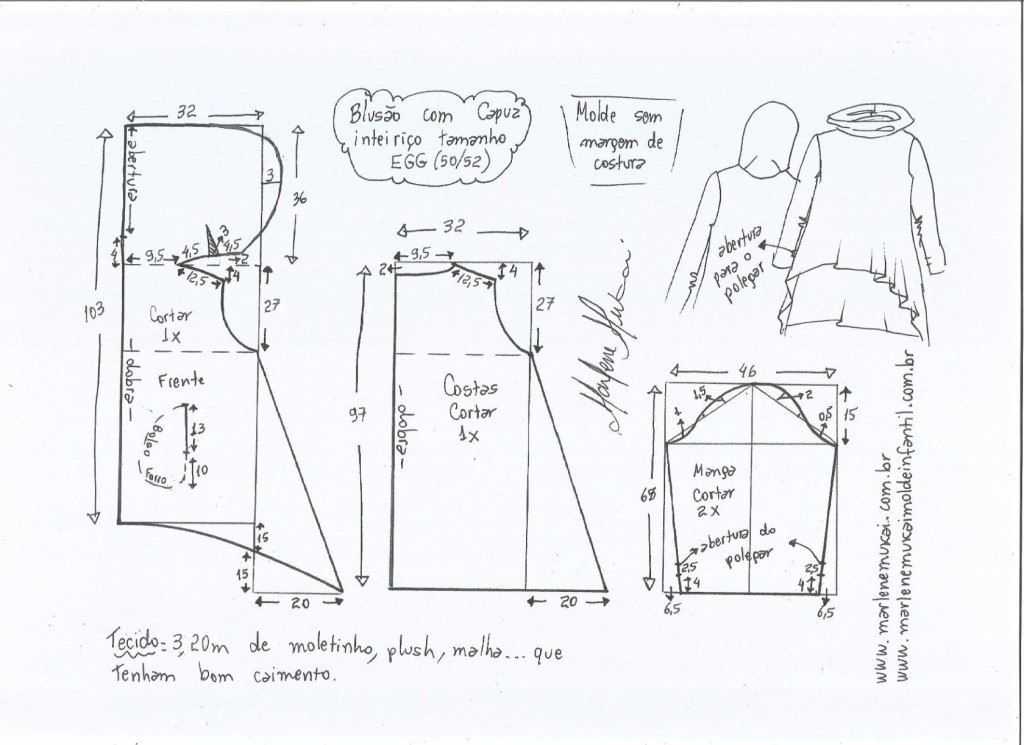 Blusão com Capuz
inteiriço tamanho
EGG (50/52)
Molde sem
margem de
costura
32
abertura
3
36
3
4
9,5
4,5
4,5
2
12,5
4
27
103
Cortar
1x
dobra
Frente
Bolso
Forro
13
10
15
15
20
32
9,5
2
12,5
4
27
97
dobra
Costas
Cortar
1x
20
Marlene Mukai
abertura
para o
polegar
46
1
1,5
2
0,5
15
68
Manga
Cortar
2x
abertura do
polegar
2,5
4
6,5
2,5
4
6,5
www.marlenemukai.com.br
www.marlenemukaimoldeinfantil.com.br
Tecido: 3,20m de moletinho, plush, malha... que
tenham bom caimento.